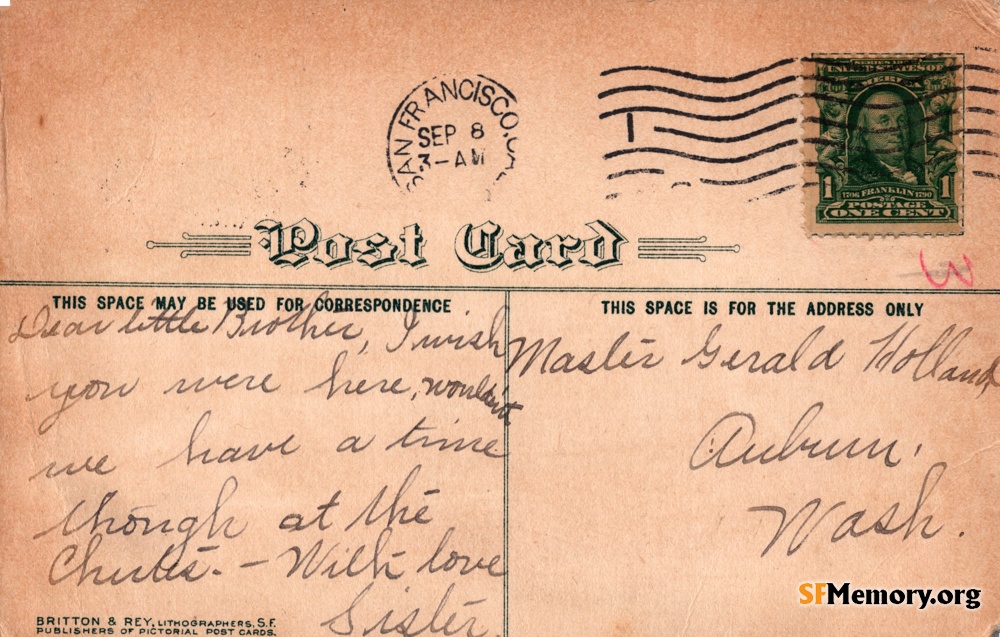 SAN FRANCISCO, CAL
SEP 8
3-AM
1
SERIES 1902
UNITED STATES OF
AMERICA
1 1
1706 FRANKLIN 1790
POSTAGE
ONE CENT
Post Card
3
THIS SPACE MAY BE USED FOR CORRESPONDENCE
Dear little Brother, I wish
you were here, wouldn't
we have a time
though at the
Chutes. - With love
Sister.
BRITTON & REY, LITHOGRAPHERS, S.F.
PUBLISHERS OF PICTORIAL POST CARDS.
THIS SPACE IS FOR THE ADDRESS ONLY
Master Gerald Holland
Auburn,
Wash.
SFMemory.org